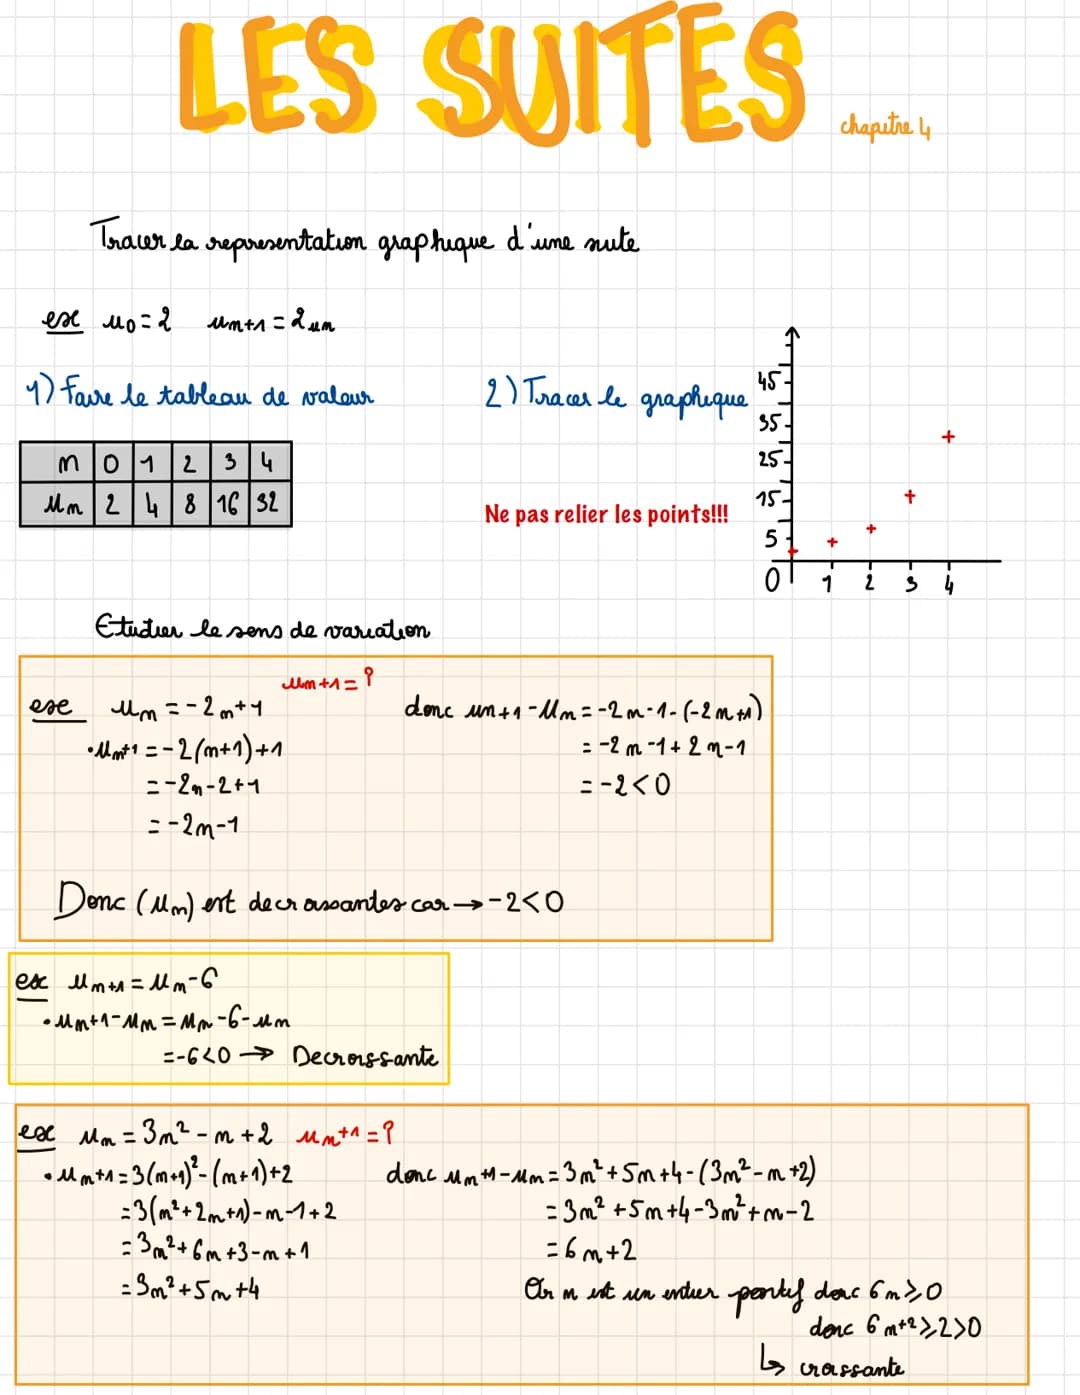 LES SUITES
chapitre 4
Tracer la representation graphique d'une suite
ex u₀ = 2 uₙ₊₁ = 2uₙ
1) Faire le tableau de valeur
n 0 1 2 3 4
uₙ 2 4 8 16 32
2) Tracer le graphique
Ne pas relier les points!!!
45
35
25
15
5
0 1 2 3 4
Etudier le sens de variation
uₙ₊₁ = ?
ex uₙ = -2n+1
• uₙ₊₁ = -2(n+1)+1
= -2n-2+1
= -2n-1
donc uₙ₊₁ - uₙ = -2n-1-(-2n+1)
= -2n-1+2n-1
= -2<0
Donc (uₙ) est decroissantes car → -2<0
ex uₙ₊₁ = uₙ-6
• uₙ₊₁ - uₙ = uₙ-6-uₙ
= -6<0 → Decroissante
ex uₙ = 3n² - n + 2 uₙ₊₁ = ?
• uₙ₊₁ = 3(n+1)² - (n+1)+2
= 3(n²+2n+1)-n-1+2
= 3n²+6n+3-n+1
= 3n²+5n+4
donc uₙ₊₁ - uₙ = 3n²+5n+4-(3n²-n+2)
= 3n²+5n+4-3n²+n-2
= 6n+2
Or n est un entier positif donc 6n⩾0
donc 6n+2⩾2>0
↳ croissante